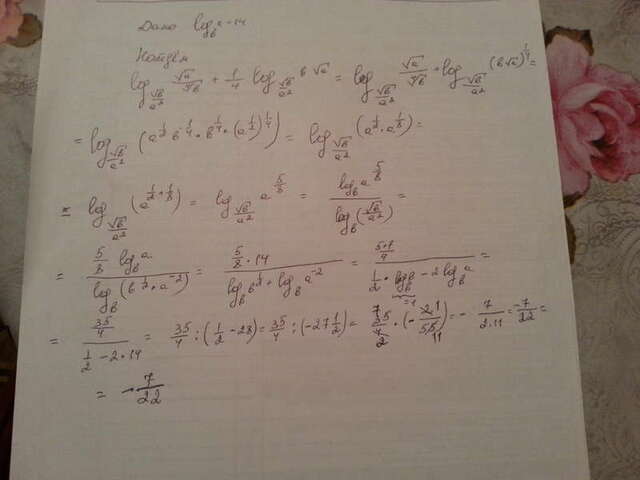 Дано log_в a = 14
Найдём
log_{√в/a²} √a/⁴√в + 1/4 log_{√в/a²} в√a = log_{√в/a²} √a/⁴√в + log_{√в/a²} (в√a)^{1/4} =
= log_{√в/a²} (a^{1/2} в^{-1/4} · в^{1/4} · (a^{1/2})^{1/4}) = log_{√в/a²} (a^{1/2} · a^{1/8}) =
= log_{√в/a²} (a^{1/2+1/8}) = log_{√в/a²} a^{5/8} = log_в a^{5/8} / log_в (√в/a²) =
= 5/8 log_в a / log_в (в^{1/2} · a^{-2}) = 5/8 · 14 / log_в в^{1/2} + log_в a^{-2} = 5·7/4 / 1/2 · log_в в - 2 log_в a =
=1
= 35/4 / 1/2 - 2·14 = 35/4 : (1/2 - 28) = 35/4 : (-27 1/2) = 35/4 · (-2/55) = - 7/2·11 = -7/22 =
= -7/22